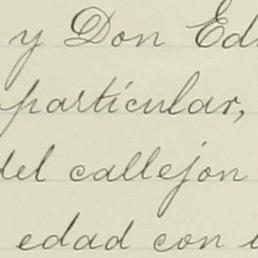 y Don Ed
particular,
del callejon
edad con